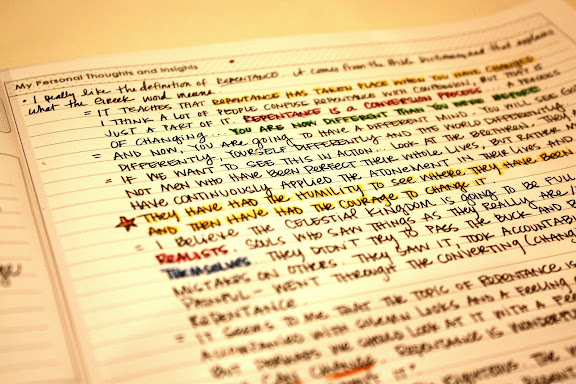 My Personal Thoughts and Insights
• I really like the definition of REPENTANCE. it comes from the Bible Dictionary and that explains
what the Greek word means.
= IT TEACHES THAT REPENTANCE HAS TAKEN PLACE WHEN YOU HAVE CHANGED.
I THINK A LOT OF PEOPLE CONFUSE REPENTANCE WITH CONFESSION, BUT THAT IS
JUST A PART OF IT. REPENTANCE IS A CONVERSION PROCESS
OF CHANGING... YOU ARE NOW DIFFERENT THAN YOU WERE BEFORE
= AND NOW, YOU ARE GOING TO HAVE A DIFFERENT MIND. YOU WILL SEE GOD
DIFFERENTLY, YOURSELF DIFFERENTLY AND THE WORLD DIFFERENTLY
= IF WE WANT TO SEE THIS IN ACTION - LOOK AT THE BRETHREN. THEY
NOT MEN WHO HAVE BEEN PERFECT THEIR WHOLE LIVES, BUT RATHER
HAVE CONTINUOUSLY APPLIED THE ATONEMENT IN THEIR LIVES AND
THEY HAVE HAD THE HUMILITY TO SEE WHERE THEY HAVE BEEN
AND THEN HAVE HAD THE COURAGE TO CHANGE IT.
= I BELIEVE THE CELESTIAL KINGDOM IS GOING TO BE FULL
REALISTS. SOULS WHO SAW THINGS AS THEY REALLY ARE
THEMSELVES. THEY DIDN'T TRY TO PASS THE BUCK AND
MISTAKES ON OTHERS. THEY SAW IT, TOOK ACCOUNTAB
PAINFUL - WENT THROUGH THE CONVERTING (CHANG
REPENTANCE
= IT SEEMS TO ME THAT THE TOPIC OF REPENTANCE IS
ACCOMPANIED WITH SOLEMN LOOKS AND A FEELING
BUT PERHAPS WE SHOULD LOOK AT IT WITH A FEE
CAN CHANGE. REPENTANCE IS WONDERFU